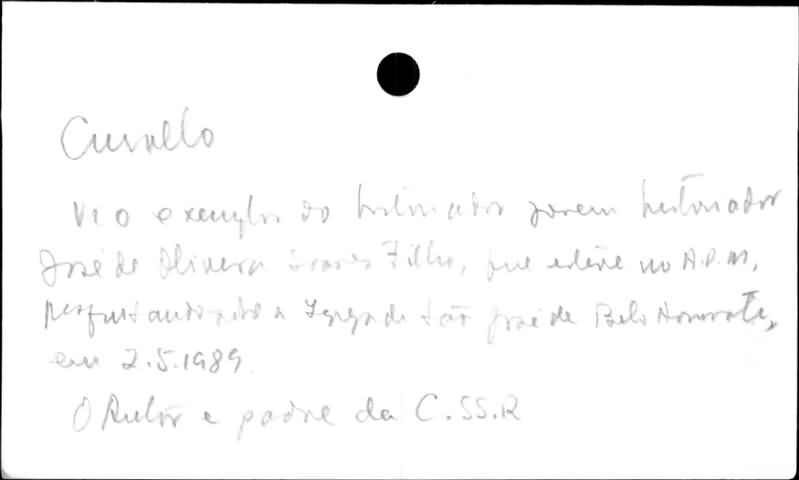 Curvello
Vi o exemplar do historiador jovem historiador
José de Oliveira Soares Filho, que esteve no A.P.M.,
pesquisando sobre a Igreja de São José de Belo Horizonte,
em 2.5.1989.
O Autor é padre da C.SS.R